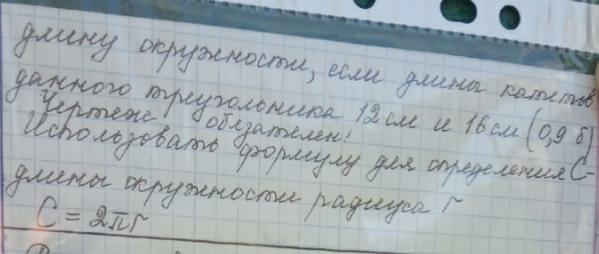 длину окружности, если длины катетов
данного треугольника 12 см и 16 см (0,9 б)
Чертеж обязателен!
Использовать формулу для определения С-
длины окружности радиуса r
C = 2πr